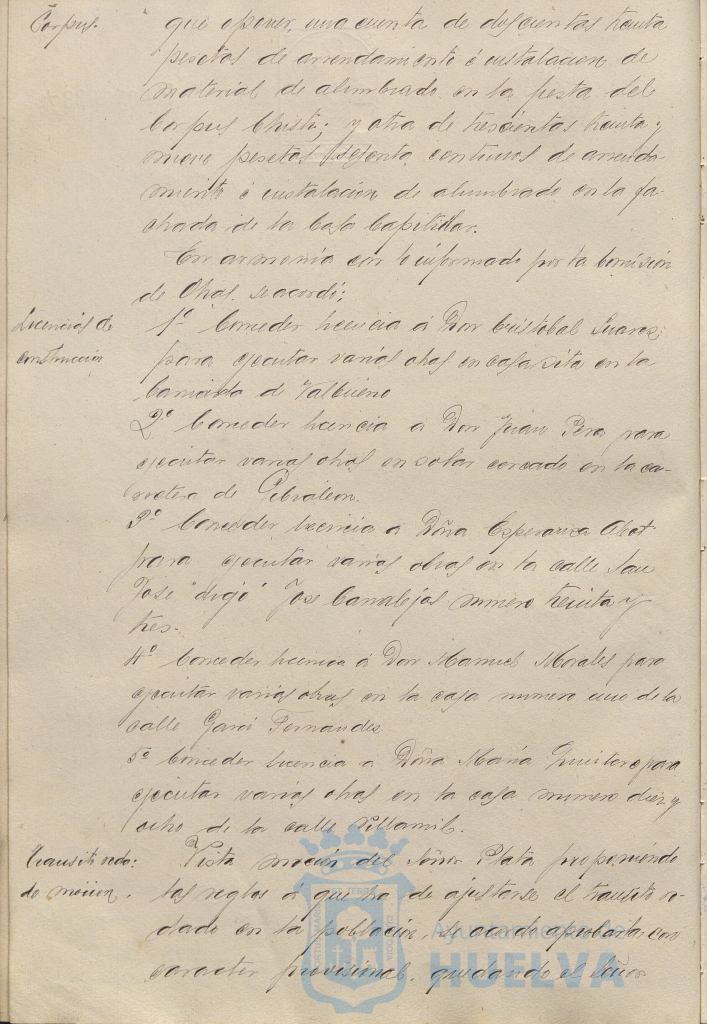 Corpus.
que oponer, una cuenta de doscientas treinta
pesetas de arrendamiento é instalacion de
material de alumbrado en la fiesta del
Corpus Christi; y otra de trescientas treinta y
nueve pesetas sesenta centimos de arrenda-
miento é instalacion de alumbrado en la fa-
chada de la Casa Capitular.
En armonia con lo informado por la Comision
de Obras se acordó;
Licencias de
construccion
1º Conceder licencia á Don Cristobal Suarez
para ejecutar varias obras en casa sita en la
barriada de Valbueno
2º Conceder licencia a Don Juan Pera para
ejecutar varias obras en solar cercado en la ca-
rretera de Gibraleon.
3º Conceder licencia a Doña Esperanza Abot
para ejecutar varias obras en la calle San
José "digo" José Canalejas numero treinta y
tres.
4º Conceder licencia á Don Manuel Morales para
ejecutar varias obras en la casa numero uno de la
calle Garci Fernandez
5º Conceder licencia a Doña María Quintero para
ejecutar varias obras en la casa numero diez y
ocho de la calle Villamil.
Transito roda-
do mocion.
Vista mocion del Señor Plata proponiendo
las reglas á que ha de ajustarse el transito ro-
dado en la poblacion, se acordó aprobarla con
caracter provisional, quedando el Señor
Ayuntamiento de
HUELVA